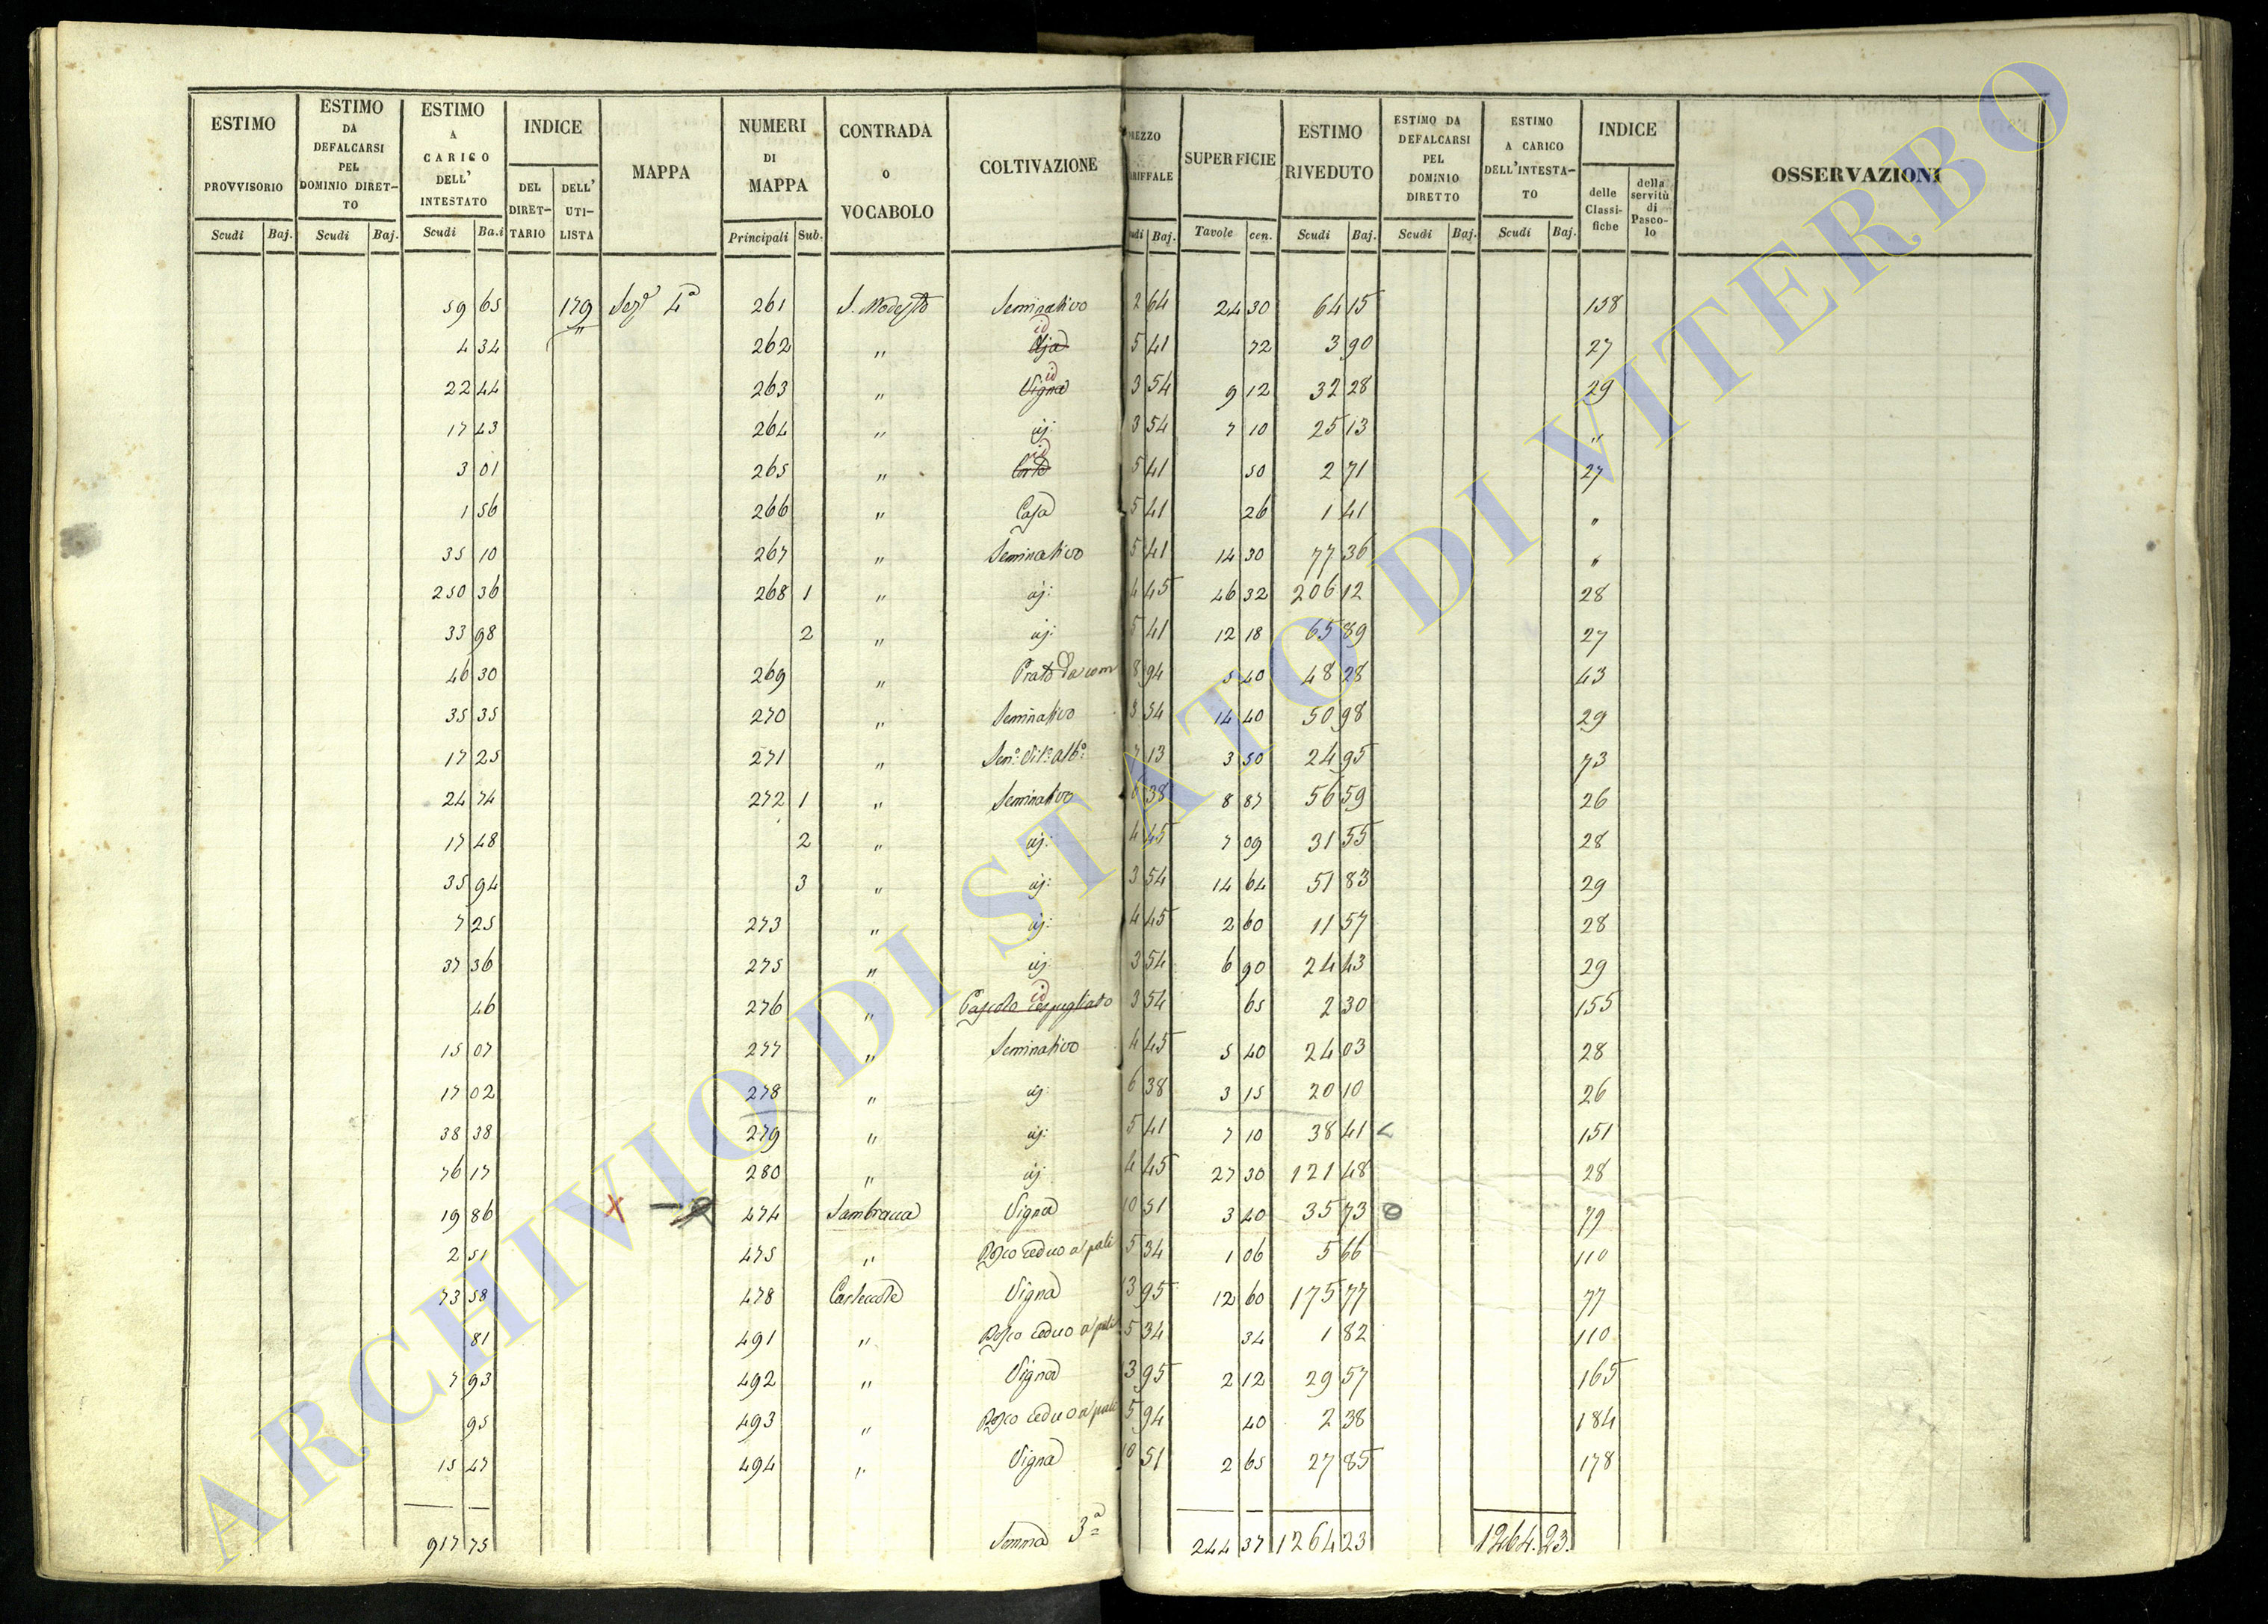 ESTIMO PROVVISORIO | ESTIMO DA DEFALCARSI PEL DOMINIO DIRETTO | ESTIMO A CARICO DELL' INTESTATO | INDICE | MAPPA | NUMERI DI MAPPA | CONTRADA o VOCABOLO | COLTIVAZIONE | SUPERFICIE | ESTIMO RIVEDUTO | ESTIMO DA DEFALCARSI PEL DOMINIO DIRETTO | ESTIMO A CARICO DELL'INTESTATO | INDICE | OSSERVAZIONI
DEL DIRETTARIO | DELL' UTILISTA | delle Classifiche | della servitù di Pascolo
Scudi | Baj. | Scudi | Baj. | Scudi | Ba.i | Principali | Sub. | Baj. | Tavole | cen. | Scudi | Baj. | Scudi | Baj. | Scudi | Baj.
59 65 179 Sezᵉ 4ª 261 S. Modesto Seminativo 2 64 24 30 64 15 158
4 34 " 262 " Aja id 5 41 72 3 90 27
22 44 263 " Vigna id 3 54 9 12 32 28 29
17 43 264 " id: 3 54 7 10 25 13 "
3 01 265 " Corte id 5 41 50 2 71 27
1 56 266 " Casa 5 41 26 1 41 "
35 10 267 " Seminativo 5 41 14 30 77 36 "
250 36 268 1 " id: 4 45 46 32 206 12 28
33 98 2 " id: 5 41 12 18 65 89 27
46 30 269 " Prato Da com 8 94 5 40 48 28 43
35 35 270 " Seminativo 3 54 14 40 50 98 29
17 25 271 " Semº Vitº Albº 7 13 3 50 24 95 73
24 74 272 1 " Seminativo 6 38 8 87 56 59 26
17 48 2 " id: 4 45 7 09 31 55 28
35 94 3 " id: 3 54 14 64 51 83 29
7 25 273 " id: 4 45 2 60 11 57 28
37 36 275 " id 3 54 6 90 24 43 29
46 276 " Pascolo cespugliato id 3 54 65 2 30 155
15 07 277 " Seminativo 4 45 5 40 24 03 28
17 02 278 " id: 6 38 3 15 20 10 26
38 38 279 " id: 5 41 7 10 38 41 151
76 17 280 " id 4 45 27 30 121 48 28
19 86 X 474 Sambracca Vigna 10 51 3 40 35 73 79
2 51 475 " Bosco ceduo a pali 5 34 1 06 5 66 110
73 58 478 Vigna 13 95 12 60 175 77 77
81 491 " Bosco ceduo a pali 5 34 34 1 82 110
7 93 492 " Vigna 13 95 2 12 29 57 165
95 493 " Bosco ceduo a pali 5 94 40 2 38 184
15 47 494 " Vigna 10 51 2 65 27 85 178
917 73 Somma 3ª 244 37 1264 23 1264.23.
ARCHIVIO DI STATO DI VITERBO